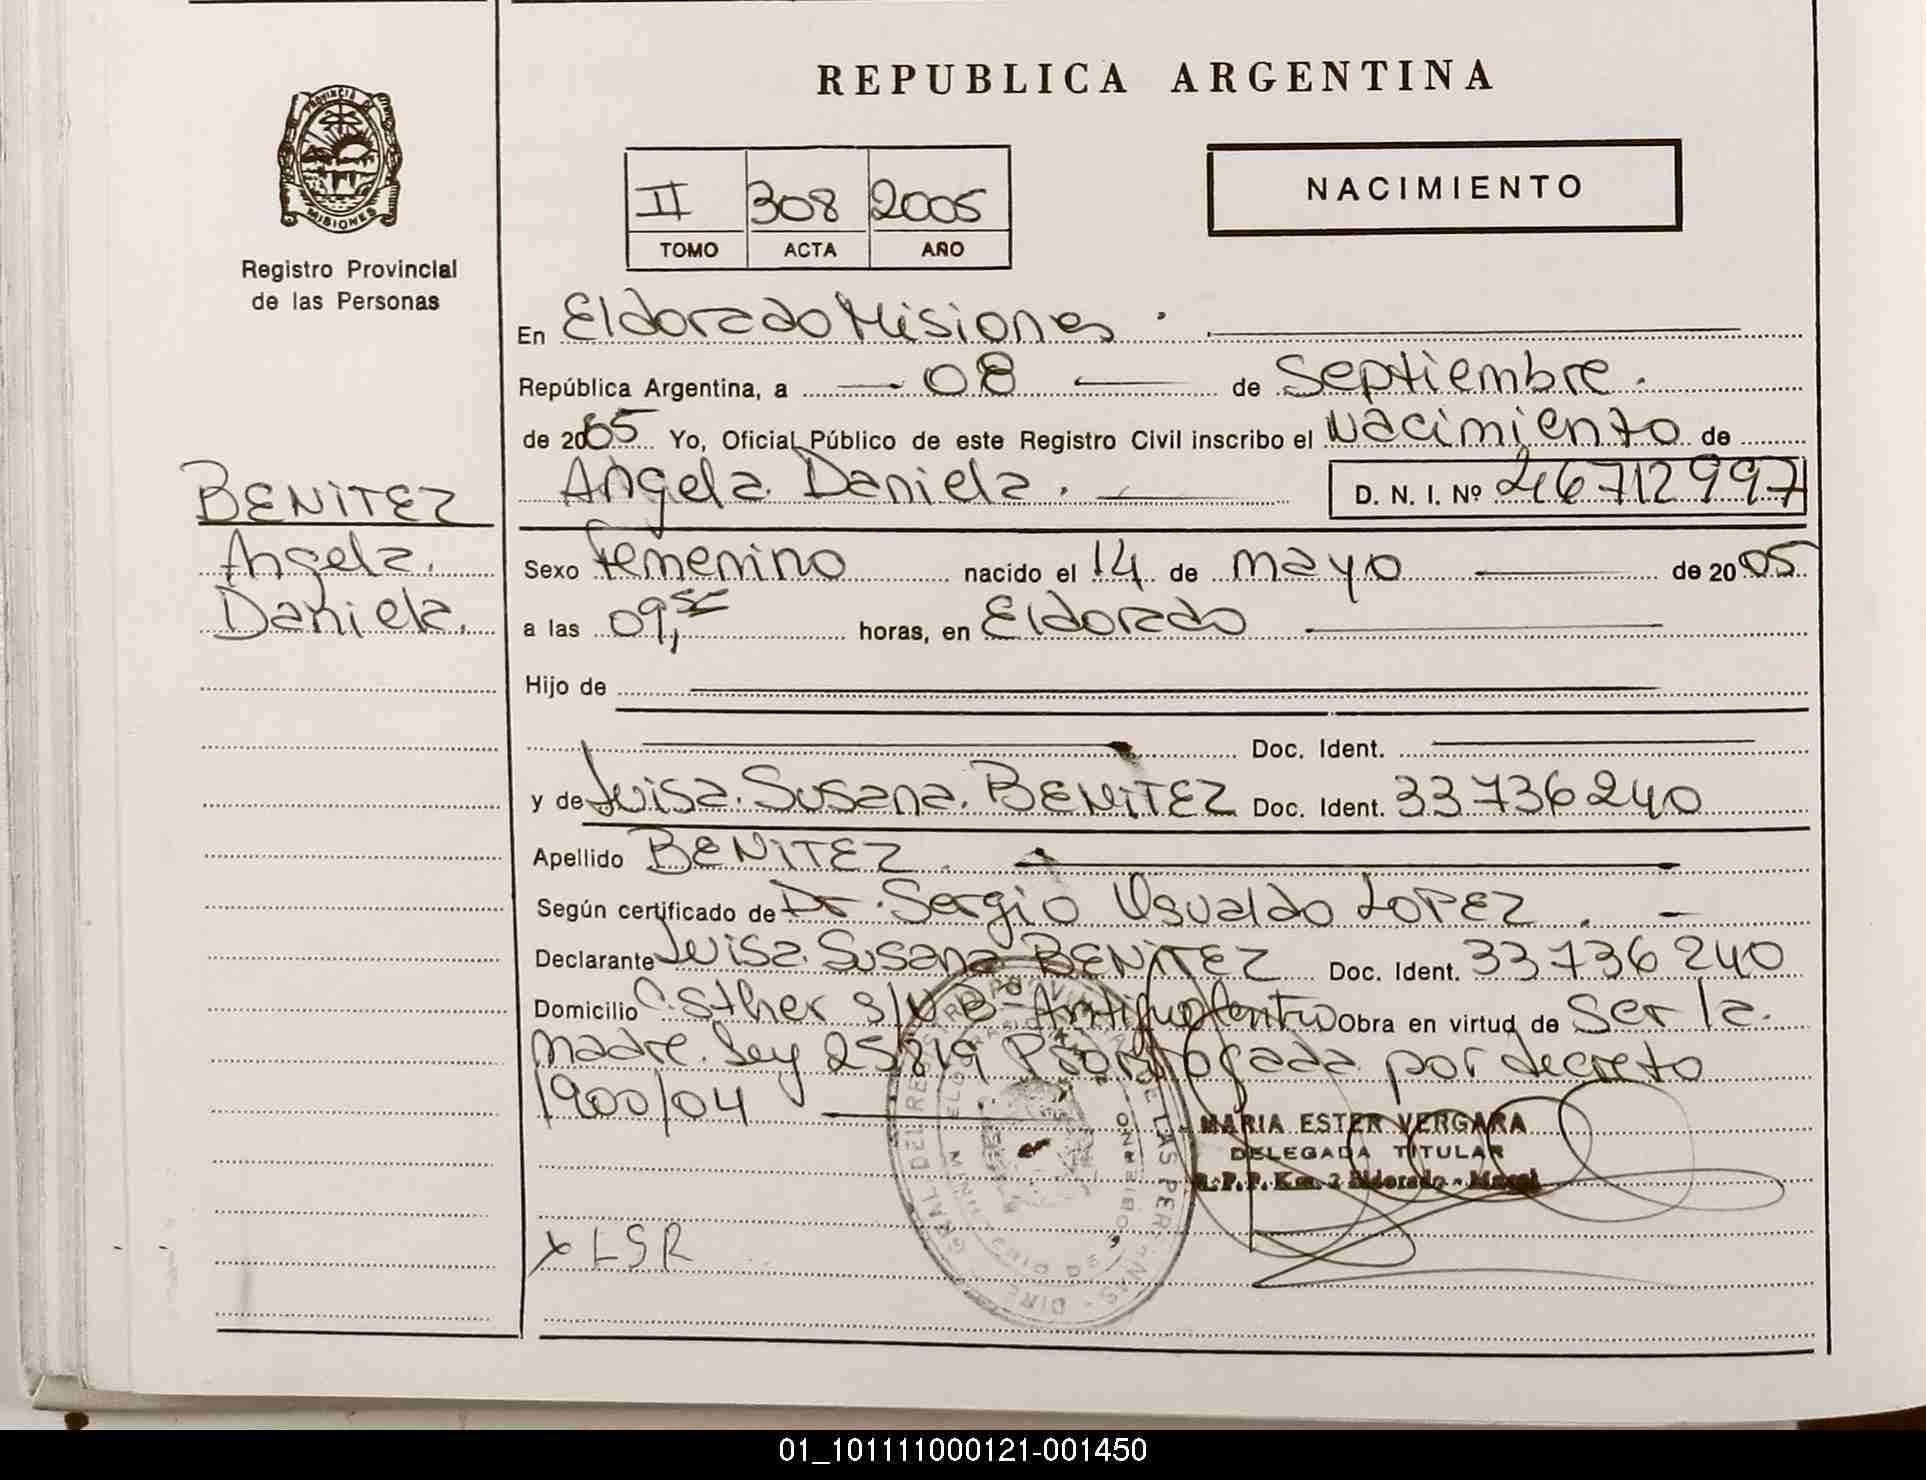 REPUBLICA ARGENTINA
PROVINCIA DE
MISIONES
Registro Provincial
de las Personas
II 308 2005
TOMO ACTA AÑO
NACIMIENTO
En Eldorado Misiones.
República Argentina, a 08 de Septiembre.
de 2005 Yo, Oficial Público de este Registro Civil inscribo el Nacimiento de
Angela Daniela. D. N. I. Nº 46712997
BENITEZ
Angela.
Daniela.
Sexo femenino nacido el 14 de mayo de 2005
a las 09, horas, en Eldorado
Hijo de
Doc. Ident.
y de Luisa Susana BENITEZ Doc. Ident. 33736240
Apellido BENITEZ
Según certificado de Dr. Sergio Osvaldo LOPEZ.
Declarante Luisa Susana BENITEZ Doc. Ident. 33736240
Domicilio Esther S/N Bº Obra en virtud de Ser la
madre. Ley 25819 por decreto
1900/04
MARIA ESTER VERGARA
DELEGADA TITULAR
R.P.P. Km. 2 Eldorado - Mnes
x LSR
01_101111000121-001450